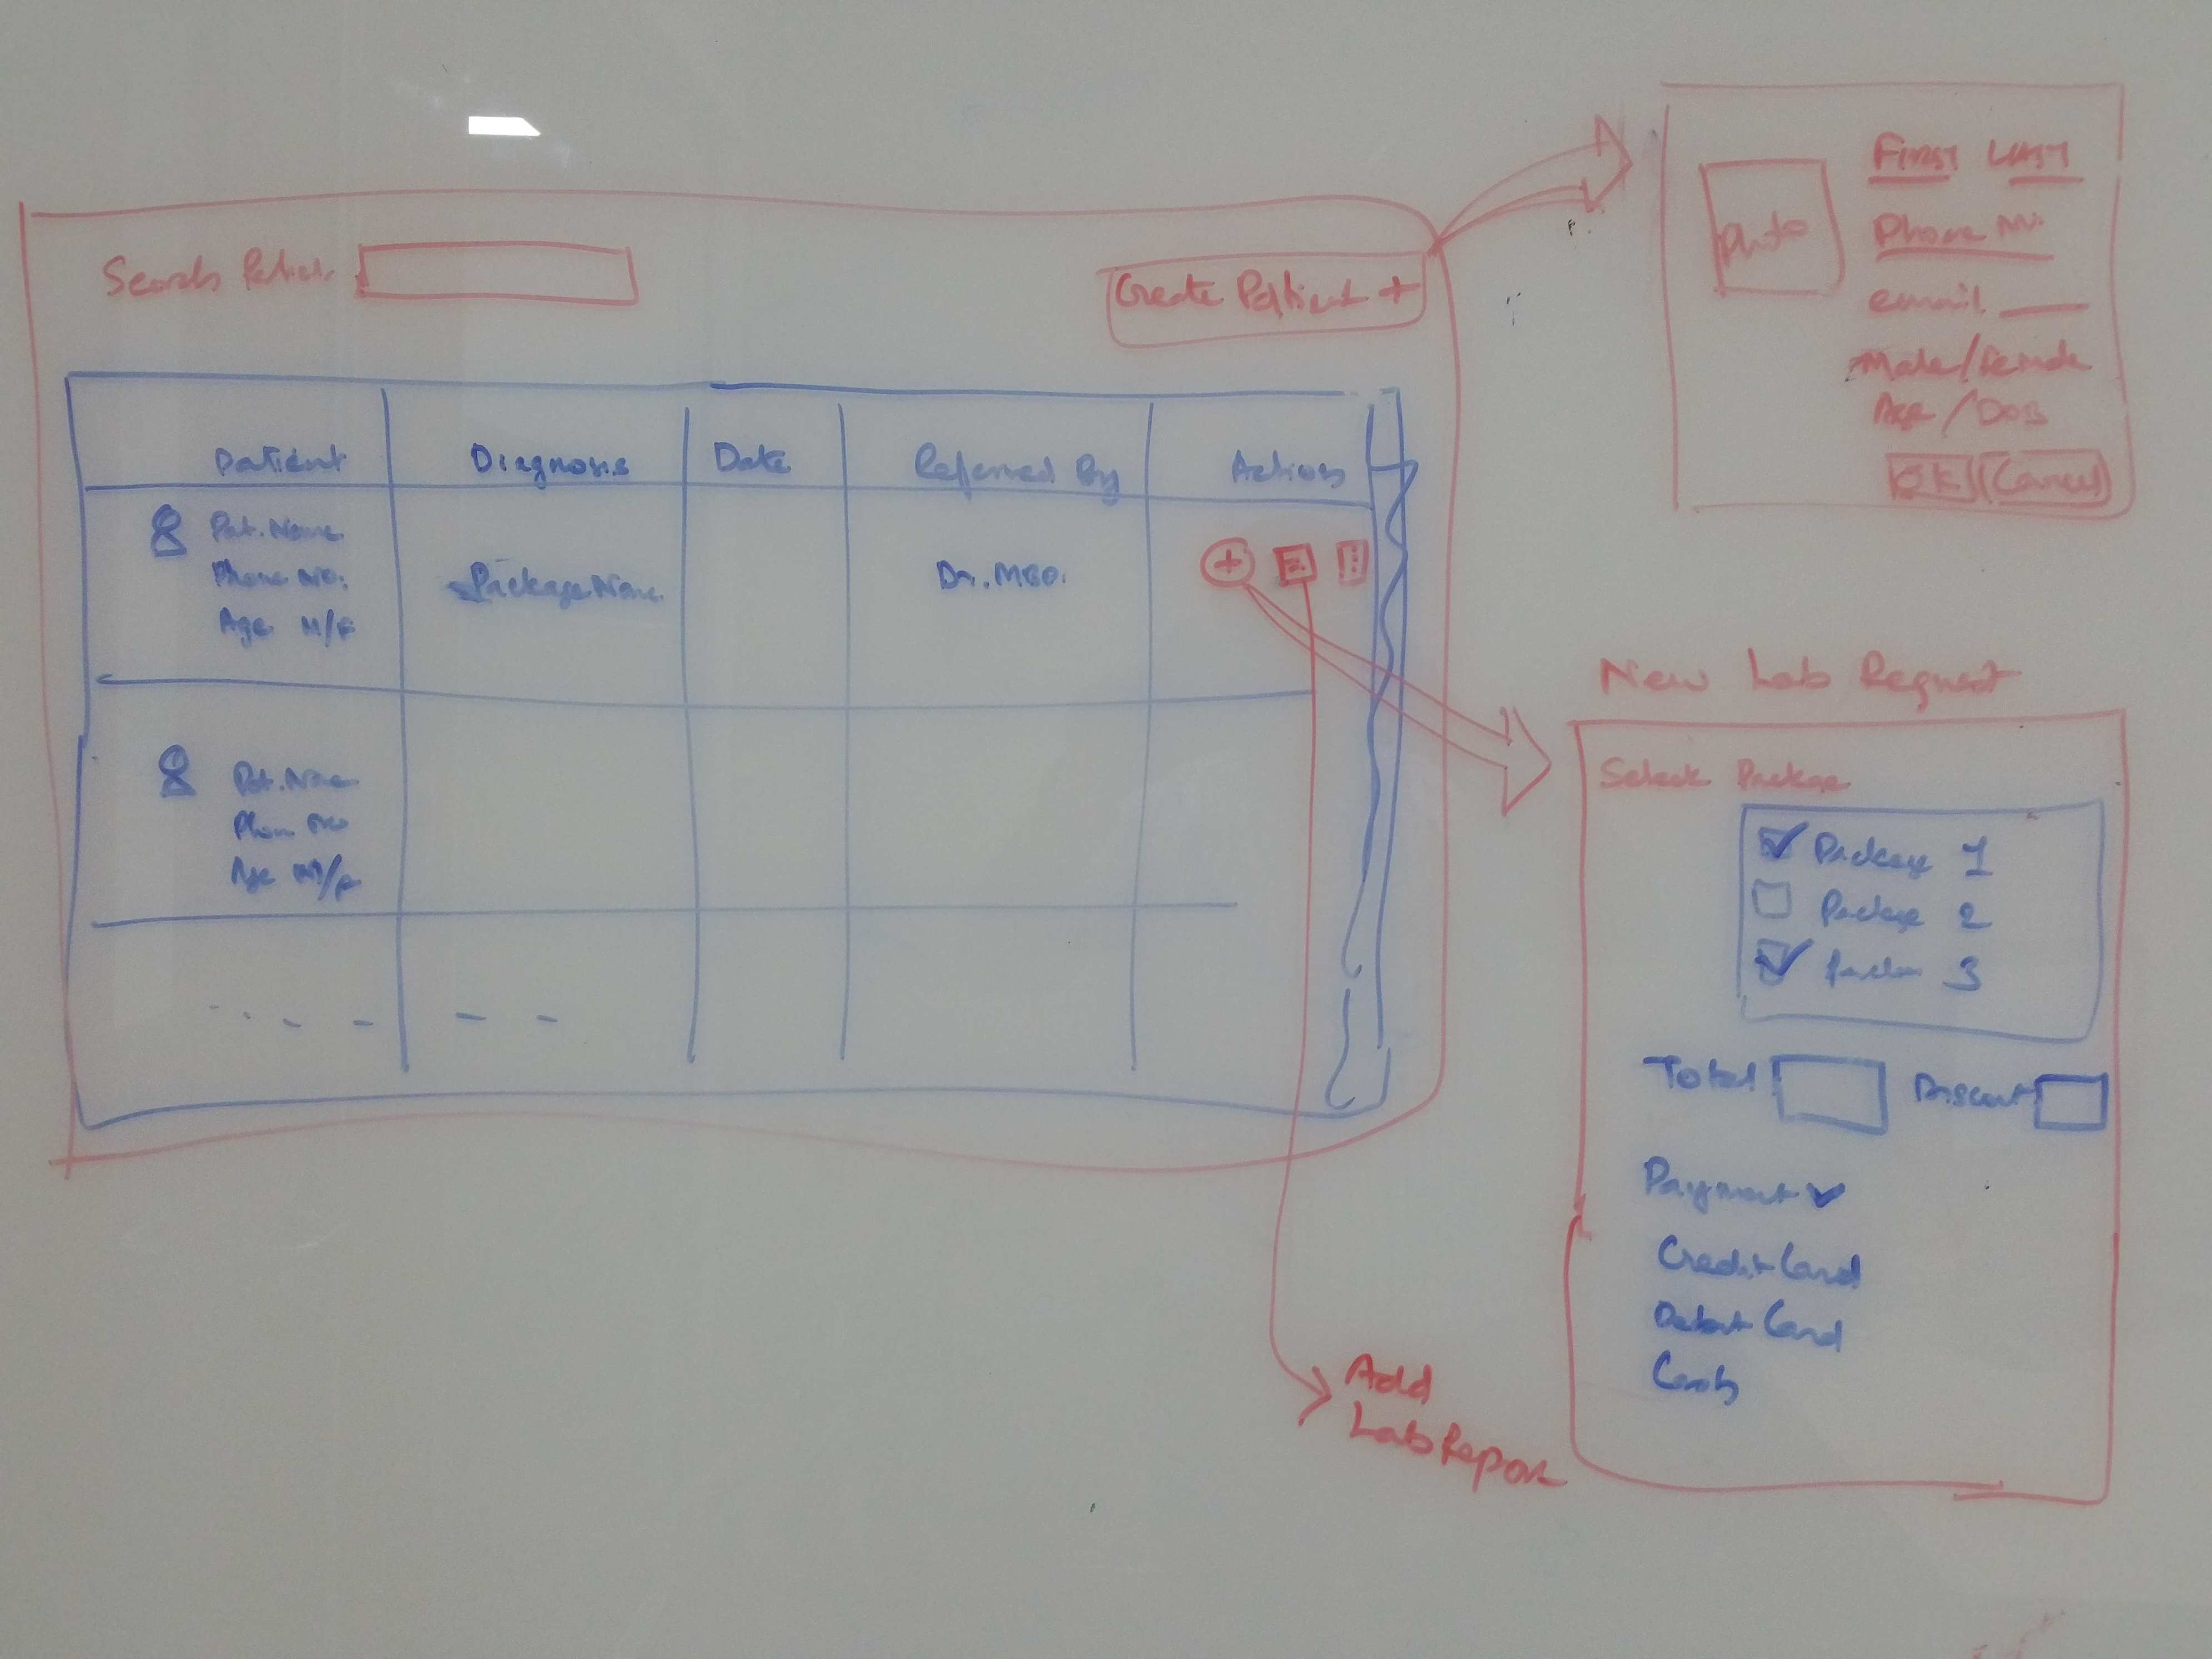 Search Patient
Create Patient +
Patient
Diagnosis
Date
Referred By
Actions
Pat. Name
Phone No.
Age M/F
Package Name
Dr. MBO.
+
Pat. Name
Phon No
Age M/F
Photo
First Last
Phone No.
email
Male/Female
Age / DOB
OK Cancel
New Lab Request
Select Package
Package 1
Package 2
3
Total
Discount
Payment
Credit Card
Debit Card
Cash
Add
Lab Report